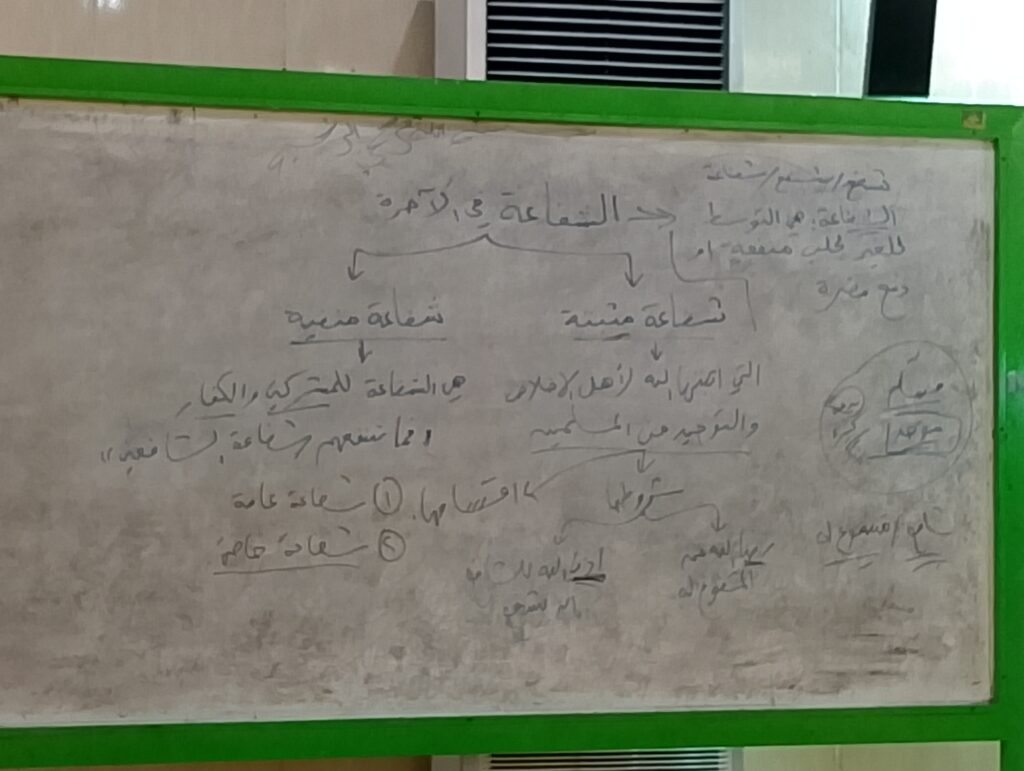 الشفاعة في الآخرة
شفع / يشفع / شفاعة
الشفاعة: هي التوسط
للغير لجلب منفعة أو
دفع مضرة
شفاعة مثبتة
التي أثبتها الله لأهل الإخلاص
والتوحيد من المسلمين
شروطها
رضا الله عن
المشفوع له
إذن الله للشافع
بأن يشفع
أقسامها:
① شفاعة عامة
② شفاعة خاصة
شفاعة منفية
هي الشفاعة للمشركين والكفار
"فما تنفعهم شفاعة الشافعين"
مسلم
موحد
شافع / مشفوع له